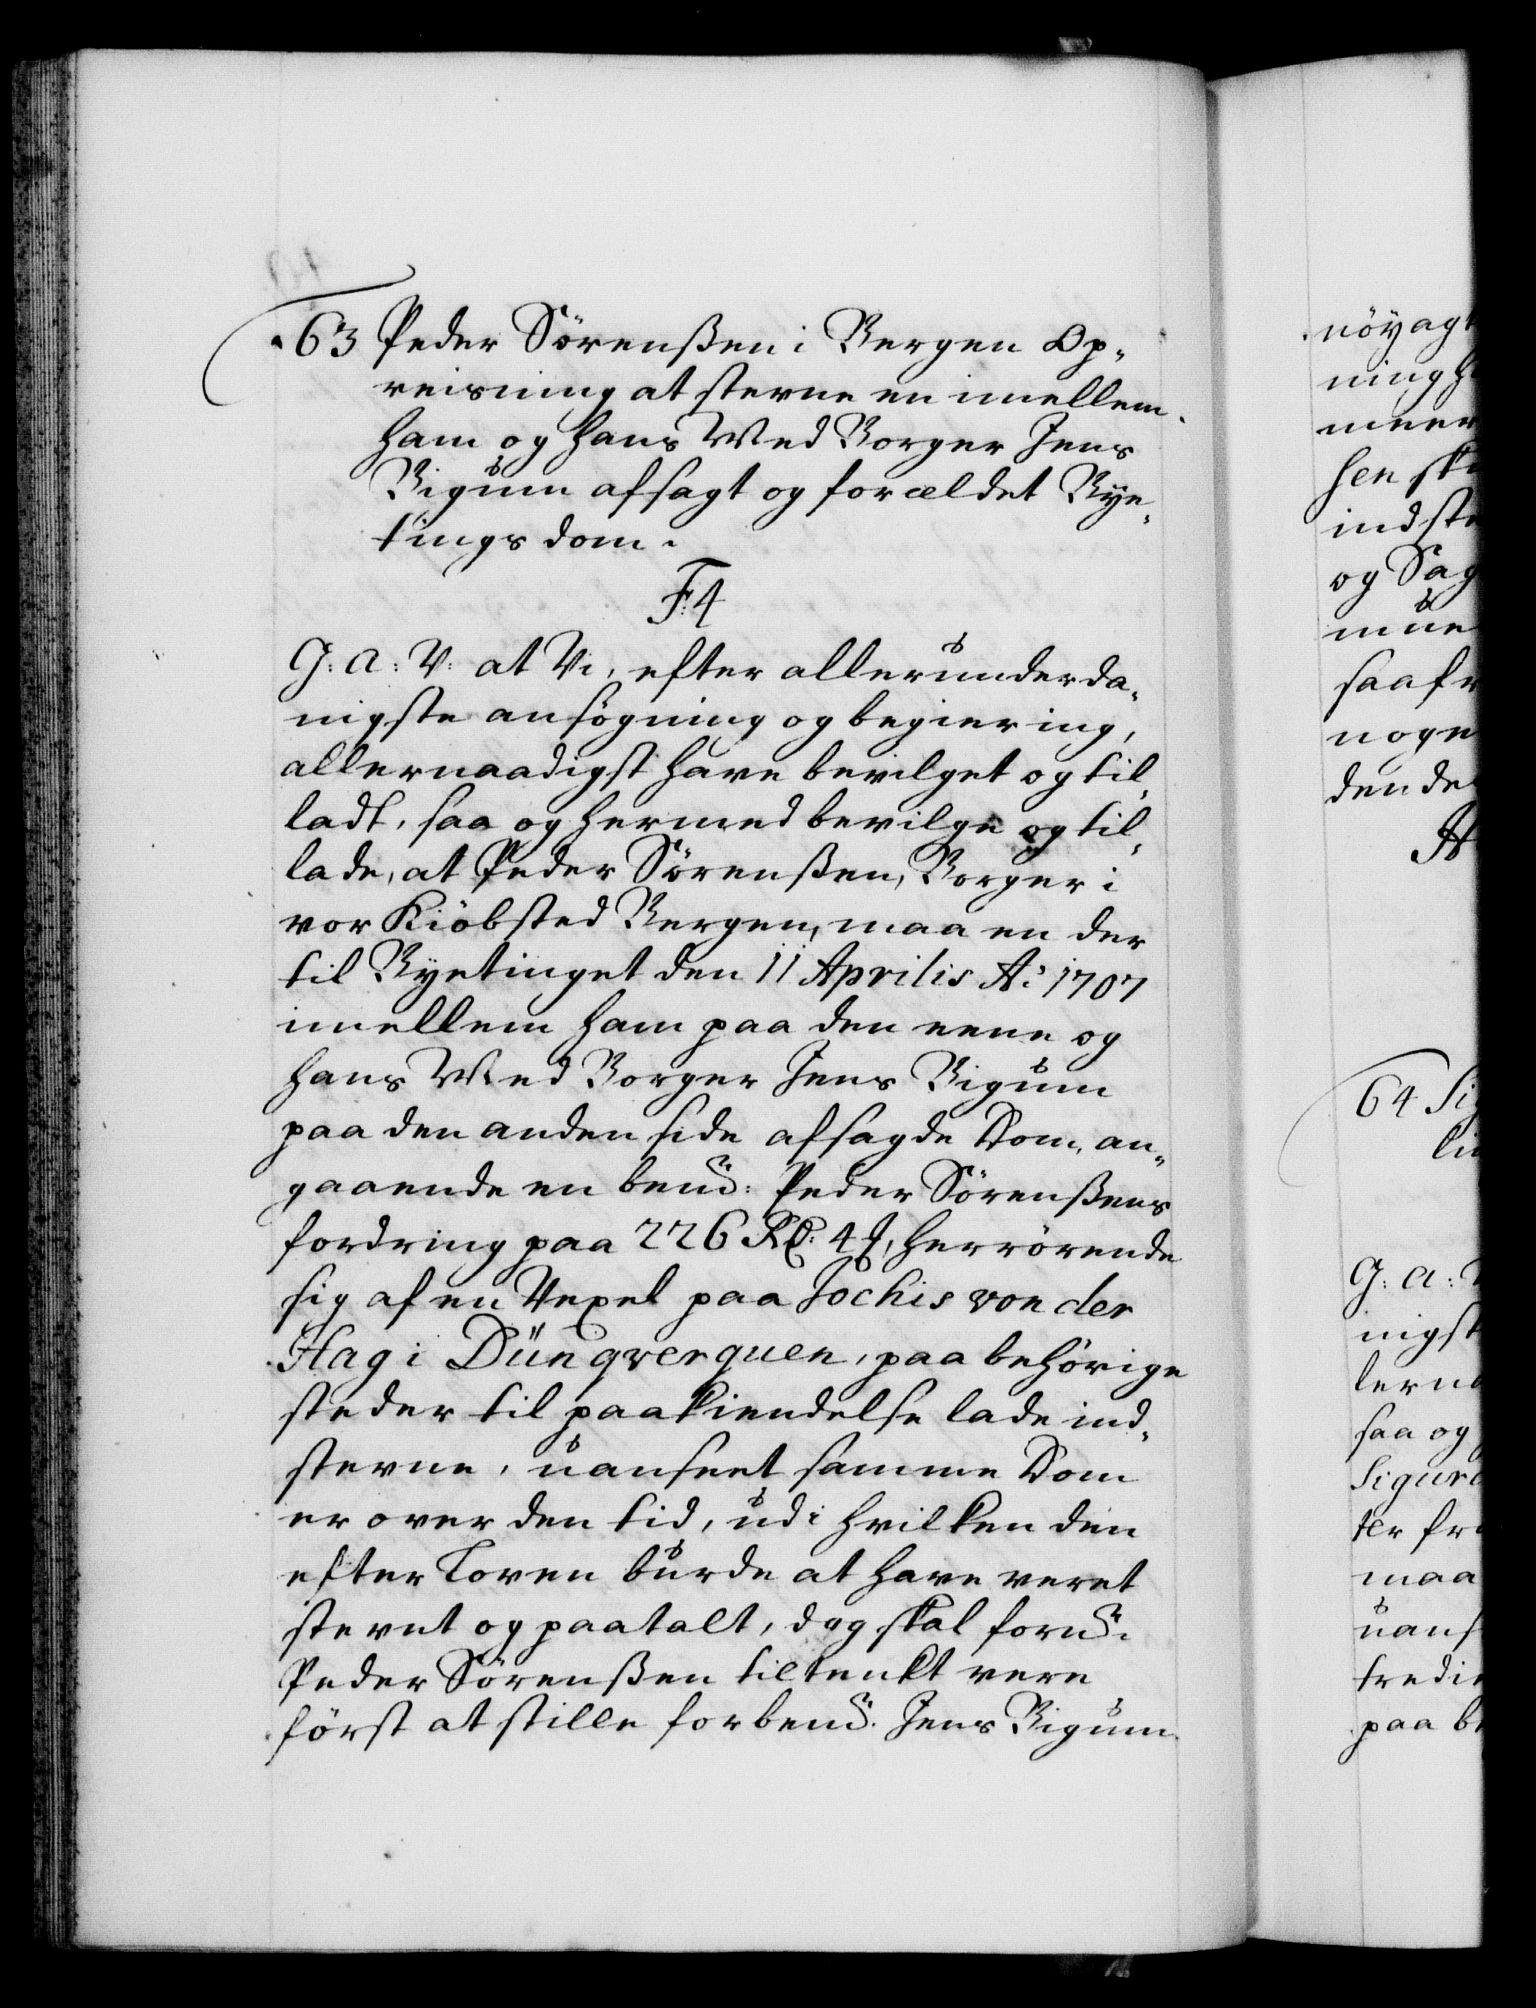 63 Peder Sörenßen i Bergen Op-
reisning at stevne en imellem
ham og hans Med Borger Jens
Bigum afsagt og forældet Bye-
tings dom.
F: 4
G: A: V: at Vi, efter allerunderda-
nigste ansøgning og begiering,
allernaadigst have bevilget og til-
ladt, saa og hermed bevilge og til-
lade, at Peder Sörenßen, Borger i
vor Kiöbsted Bergen, maa en der
til Byetinget den 11 Aprilis Ao: 1707
imellem ham paa den eene og
hans Med Borger Jens Bigum
paa den anden side afsagde Dom, an-
gaaende en bemt: Peder Sörenßens
fordring paa 226 Rd: 4 ß, herrörende
sig af en Vexel paa Jochis von der
Hag i Dünqverquen, paa behörige
steder til paakiendelse lade ind-
stevne, uanseet samme Dom
er over den tid, udi hvilken den
efter Loven burde at have veret
stevnt og paatalt, dog skal fornt:
Peder Sörenßen tiltenkt vere
först at stille for bemt. Jens Bigum
nöyagt
ning h
meer
sen sk
indste
og Sag
mue
saafr
noge
den de
64 Sig
G: A: V
nigst
lerna
saa og
Sigurd
ter fr
maa
uans
tredie
paa be